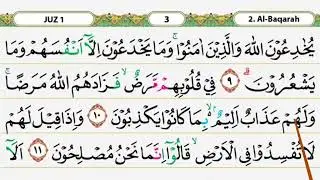 JUZ 1 3 2. Al-Baqarah
يُخٰدِعُوْنَ اللّٰهَ وَالَّذِيْنَ اٰمَنُوْا ۚ وَمَا يَخْدَعُوْنَ اِلَّآ اَنْفُسَهُمْ وَمَا
يَشْعُرُوْنَ ۗ ٩ فِيْ قُلُوْبِهِمْ مَّرَضٌ ۙ فَزَادَهُمُ اللّٰهُ مَرَضًا ۚ
وَلَهُمْ عَذَابٌ اَلِيْمٌ ۢ ەۙ بِمَا كَانُوْا يَكْذِبُوْنَ ١٠ وَاِذَا قِيْلَ لَهُمْ
لَا تُفْسِدُوْا فِى الْاَرْضِۙ قَالُوْٓا اِنَّمَا نَحْنُ مُصْلِحُوْنَ ١١ اَلَآ